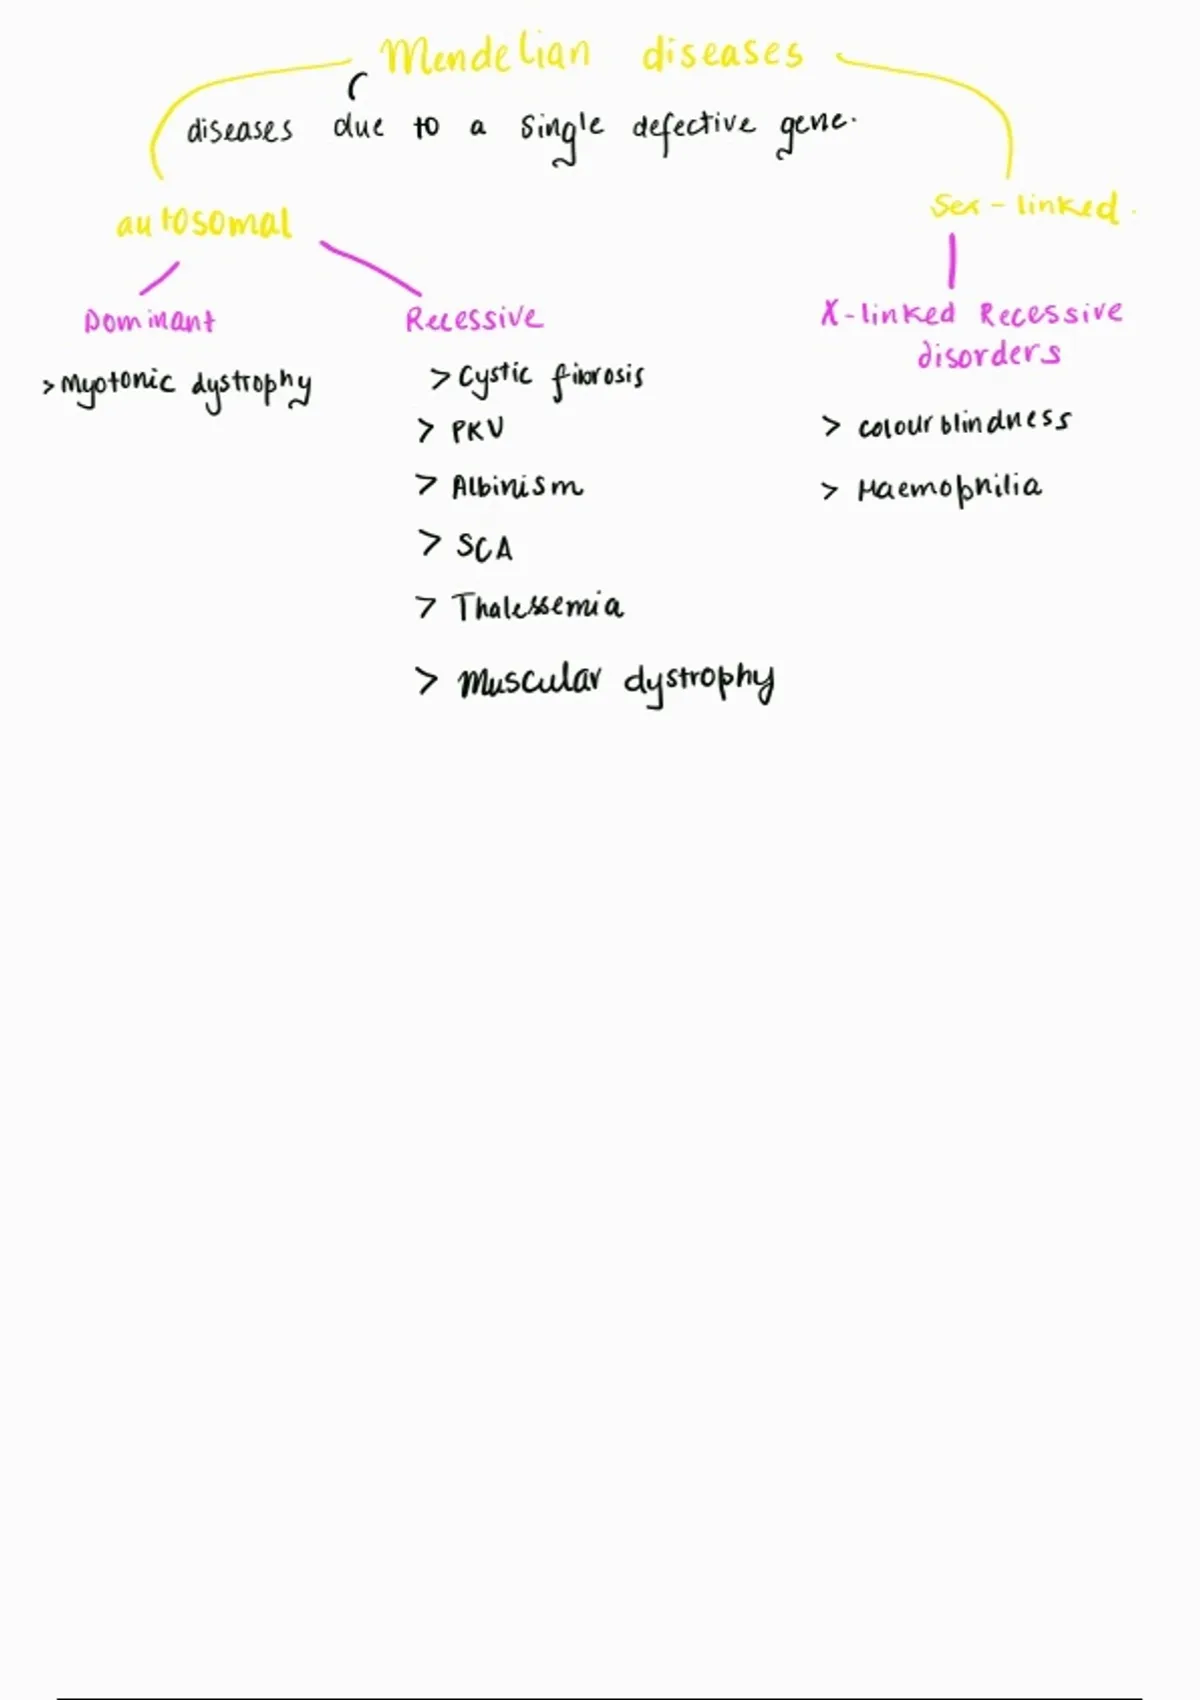 Mendelian diseases
diseases due to a single defective gene.
autosomal
Sex-linked.
Dominant
> Myotonic dystrophy
Recessive
> Cystic fibrosis
> PKU
> Albinism
> SCA
> Thalessemia
> Muscular dystrophy
X-linked Recessive
disorders
> colourblindness
> Haemophilia